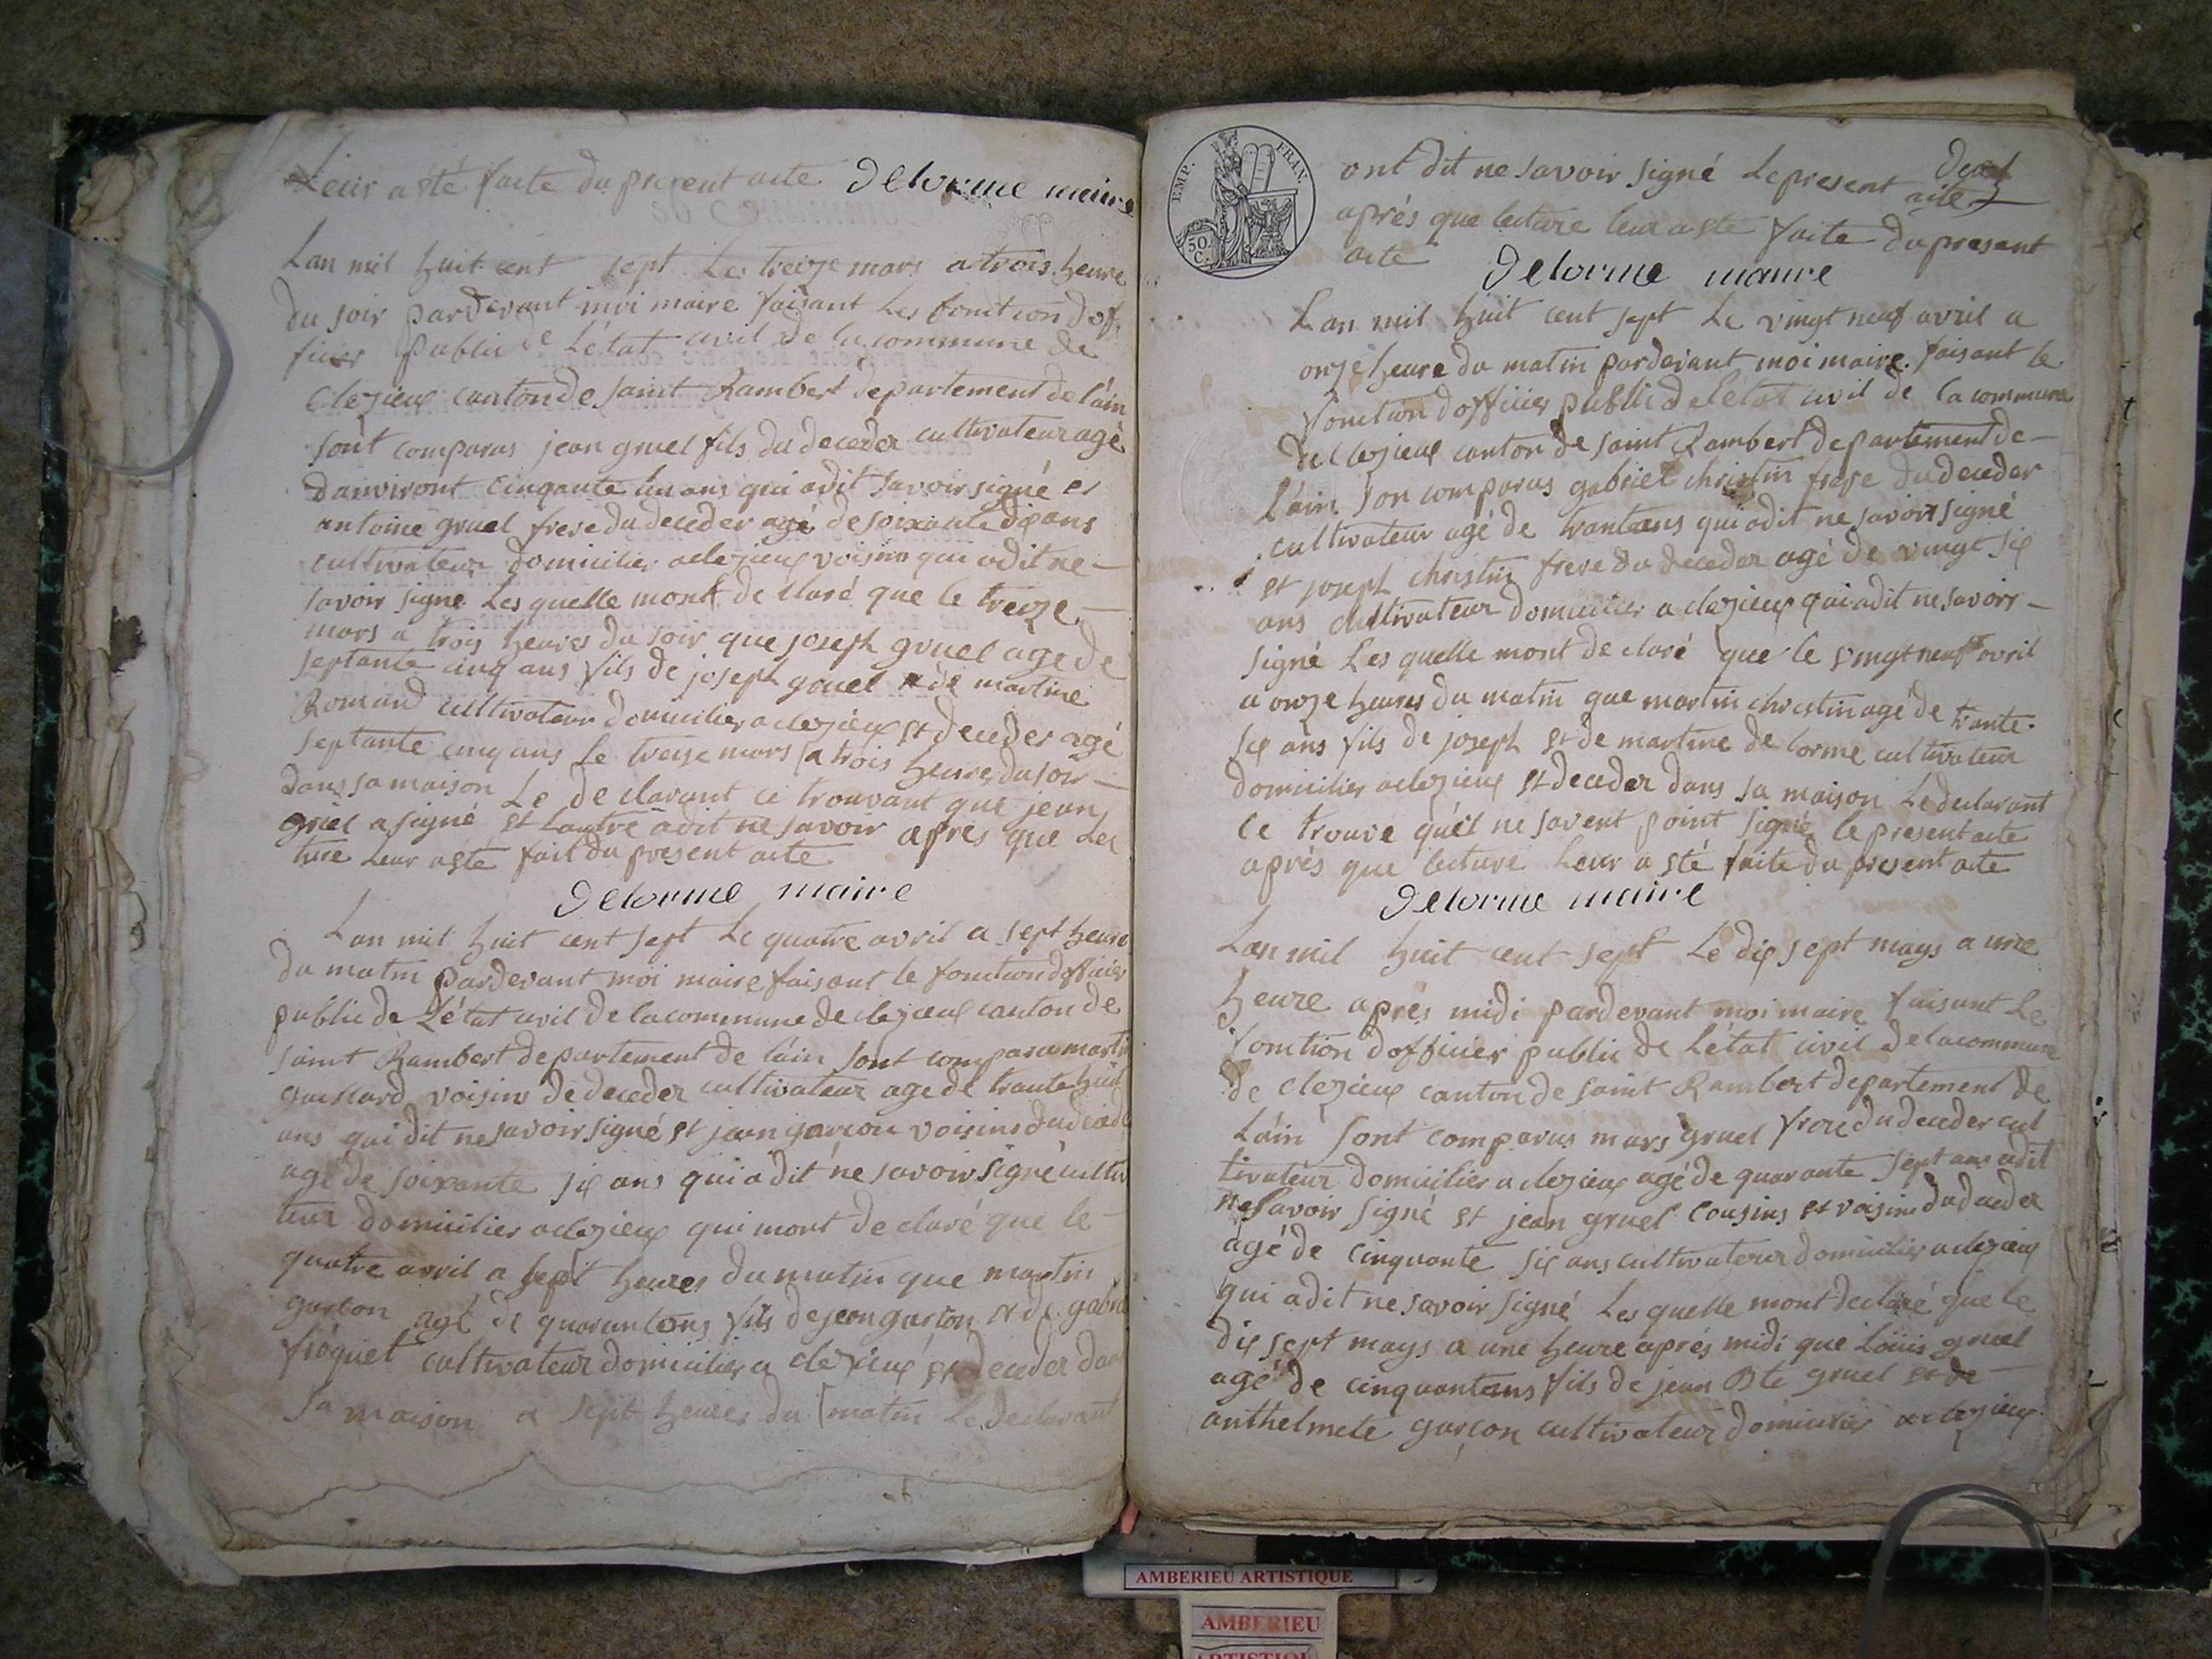 Leur a eté faite du present acte Delorme maire
Lan mil huit cent sept Le treize mars a trois heure
du soir pardevant moi maire faisant les fonction dof
ficier public de L'état civil de la commune de
Clezieux canton de saint Rambert departement de l'ain
sont comparus jean gruel fils du deceder cultivateur agé
danviront cinqante un ans qui a dit savoir signé et
antoine gruel frere du deceder agé de soixante dix ans
cultivateur domicilier a clezieux voisin qui a dit ne
savoir signe Les quelle mont déclaré que le treize
mars a trois heures du soir que joseph gruel age de
septante cinq ans fils de joseph gruel et de martine
Romand cultivateur domicilier a clezieux et deceder agé
septante cinq ans le treize mars a trois heures du soir
dans sa maison Le declarant ce trouvant que jean
gruel a signé et Lautre a dit ne savoir apres que Lec
ture Leur a eté fait du present acte
Delorme maire
Lan mil huit cent sept Le quatre avril a sept heure
du matin pardevant moi maire faisant le fonction dofficier
public de L'état civil de la commune de clezieux canton de
saint Rambert departement de l'ain sont comparu martin
gaillard voisins de deceder cultivateur age de trante huit
ans qui dit ne savoir signé et jean garcon voisins du deced
age de soixante six ans qui a dit ne savoir signé cultiv
teur domicilier a clezieux qui mont declaré que le
quatre avril a sept heures du matin que martin
garcon agé de quarantans fils de jean garcon et de gabri
froquet cultivateur domicilier a clezieux et deceder dans
sa maison a sept heures du matin Le declarant
TEMP. FRAN.
50 C.
ont dit ne savoir signé Le present acte
après que lecture leur a eté faite du presant
acte
Delorme maire
Lan mil huit cent sept Le vingt neuf avril a
onze heure du matin pardevant moi maire faisant le
fonction dofficier public de L'état civil de la commune
de clezieux canton de saint Rambert departement de
l'ain son comparus gabriel christin frere du deceder
cultivateur agé de trantans qui a dit ne savoir signé
et joseph christin frere du deceder agé de vingt six
ans cultivateur domicilier a clezieux qui a dit ne savoir
signé Les quelle mont declaré que le vingt neuf avril
a onze heures du matin que martin christin agé de trante
six ans fils de joseph et de martine de lorme cultivateur
domicilier a clezieux et deceder dans sa maison Le declarant
ce trouve qu'il ne savent point signé le present acte
après que lecture Leur a eté faite du present acte
Delorme maire
Lan mil huit cent sept Le dix sept mays a une
heure après midi pardevant moi maire faisant Le
fonction dofficier public de L'état civil de la commune
de clezieux canton de saint Rambert departement de
L'ain sont comparus mars gruel frere du deceder cul
tivateur domicilier a clezieux agé de quarante sept ans a dit
ne savoir signé et jean gruel cousins et voisins du deceder
agé de cinquante six ans cultivateur domicilier a clezieux
qui a dit ne savoir signé Les quelle mont declaré que le
dix sept mays a une heure aprés midi que Loüis gruel
agé de cinquantans fils de jean Bte gruel et de
anthelmete garçon cultivateur domicilier a clezieux
AMBERIEU ARTISTIQUE
AMBERIEU
ARTISTIQUE